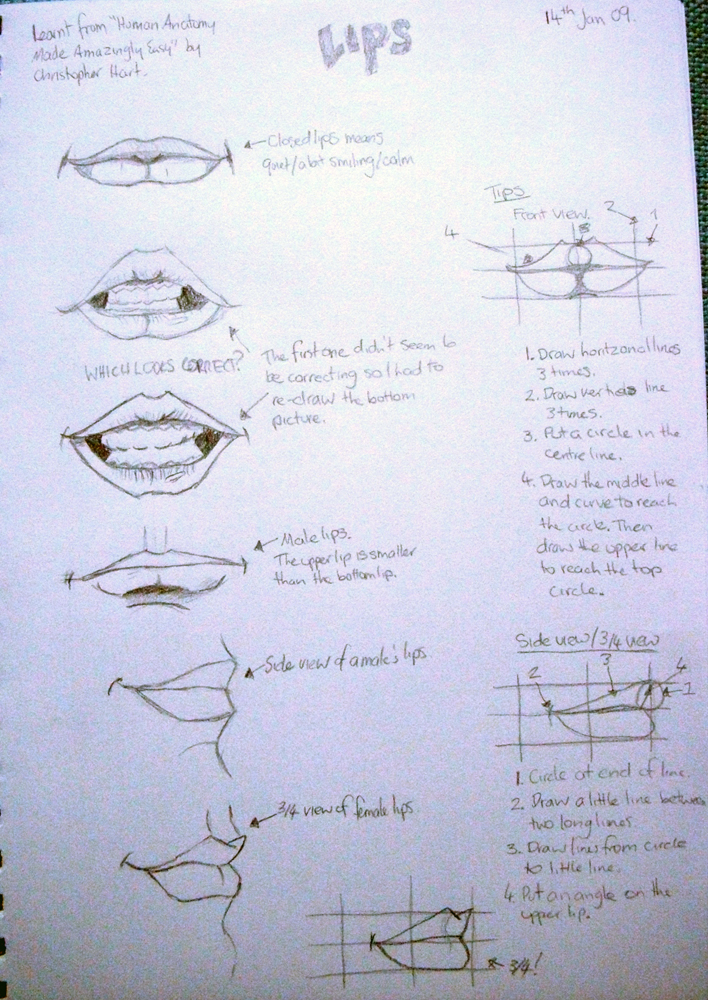 Learnt from "Human Anatomy
Made Amazingly Easy" by
Christopher Hart.
LIPS
14th Jan 09.
Closed lips means
quiet/a bit smiling/calm
WHICH LOOKS CORRECT?
The first one didn't seem to
be correcting so I had to
re-draw the bottom
picture.
Male lips.
The upper lip is smaller
than the bottom lip.
Side view of a male's lips.
3/4 view of female lips.
Tips
Front view.
4
3
2
1
1. Draw horizonal lines
3 times.
2. Draw line
3 times.
3. Put a circle in the
centre line.
4. Draw the middle line
and curve to reach
the circle. Then
draw the upper line
to reach the top
circle.
Side view/3/4 view
2
3
4
1
1. Circle at end of line.
2. Draw a little line between
two long lines.
3. Draw lines from circle
to little line.
4. Put an angle on the
upper lip.
3/4!